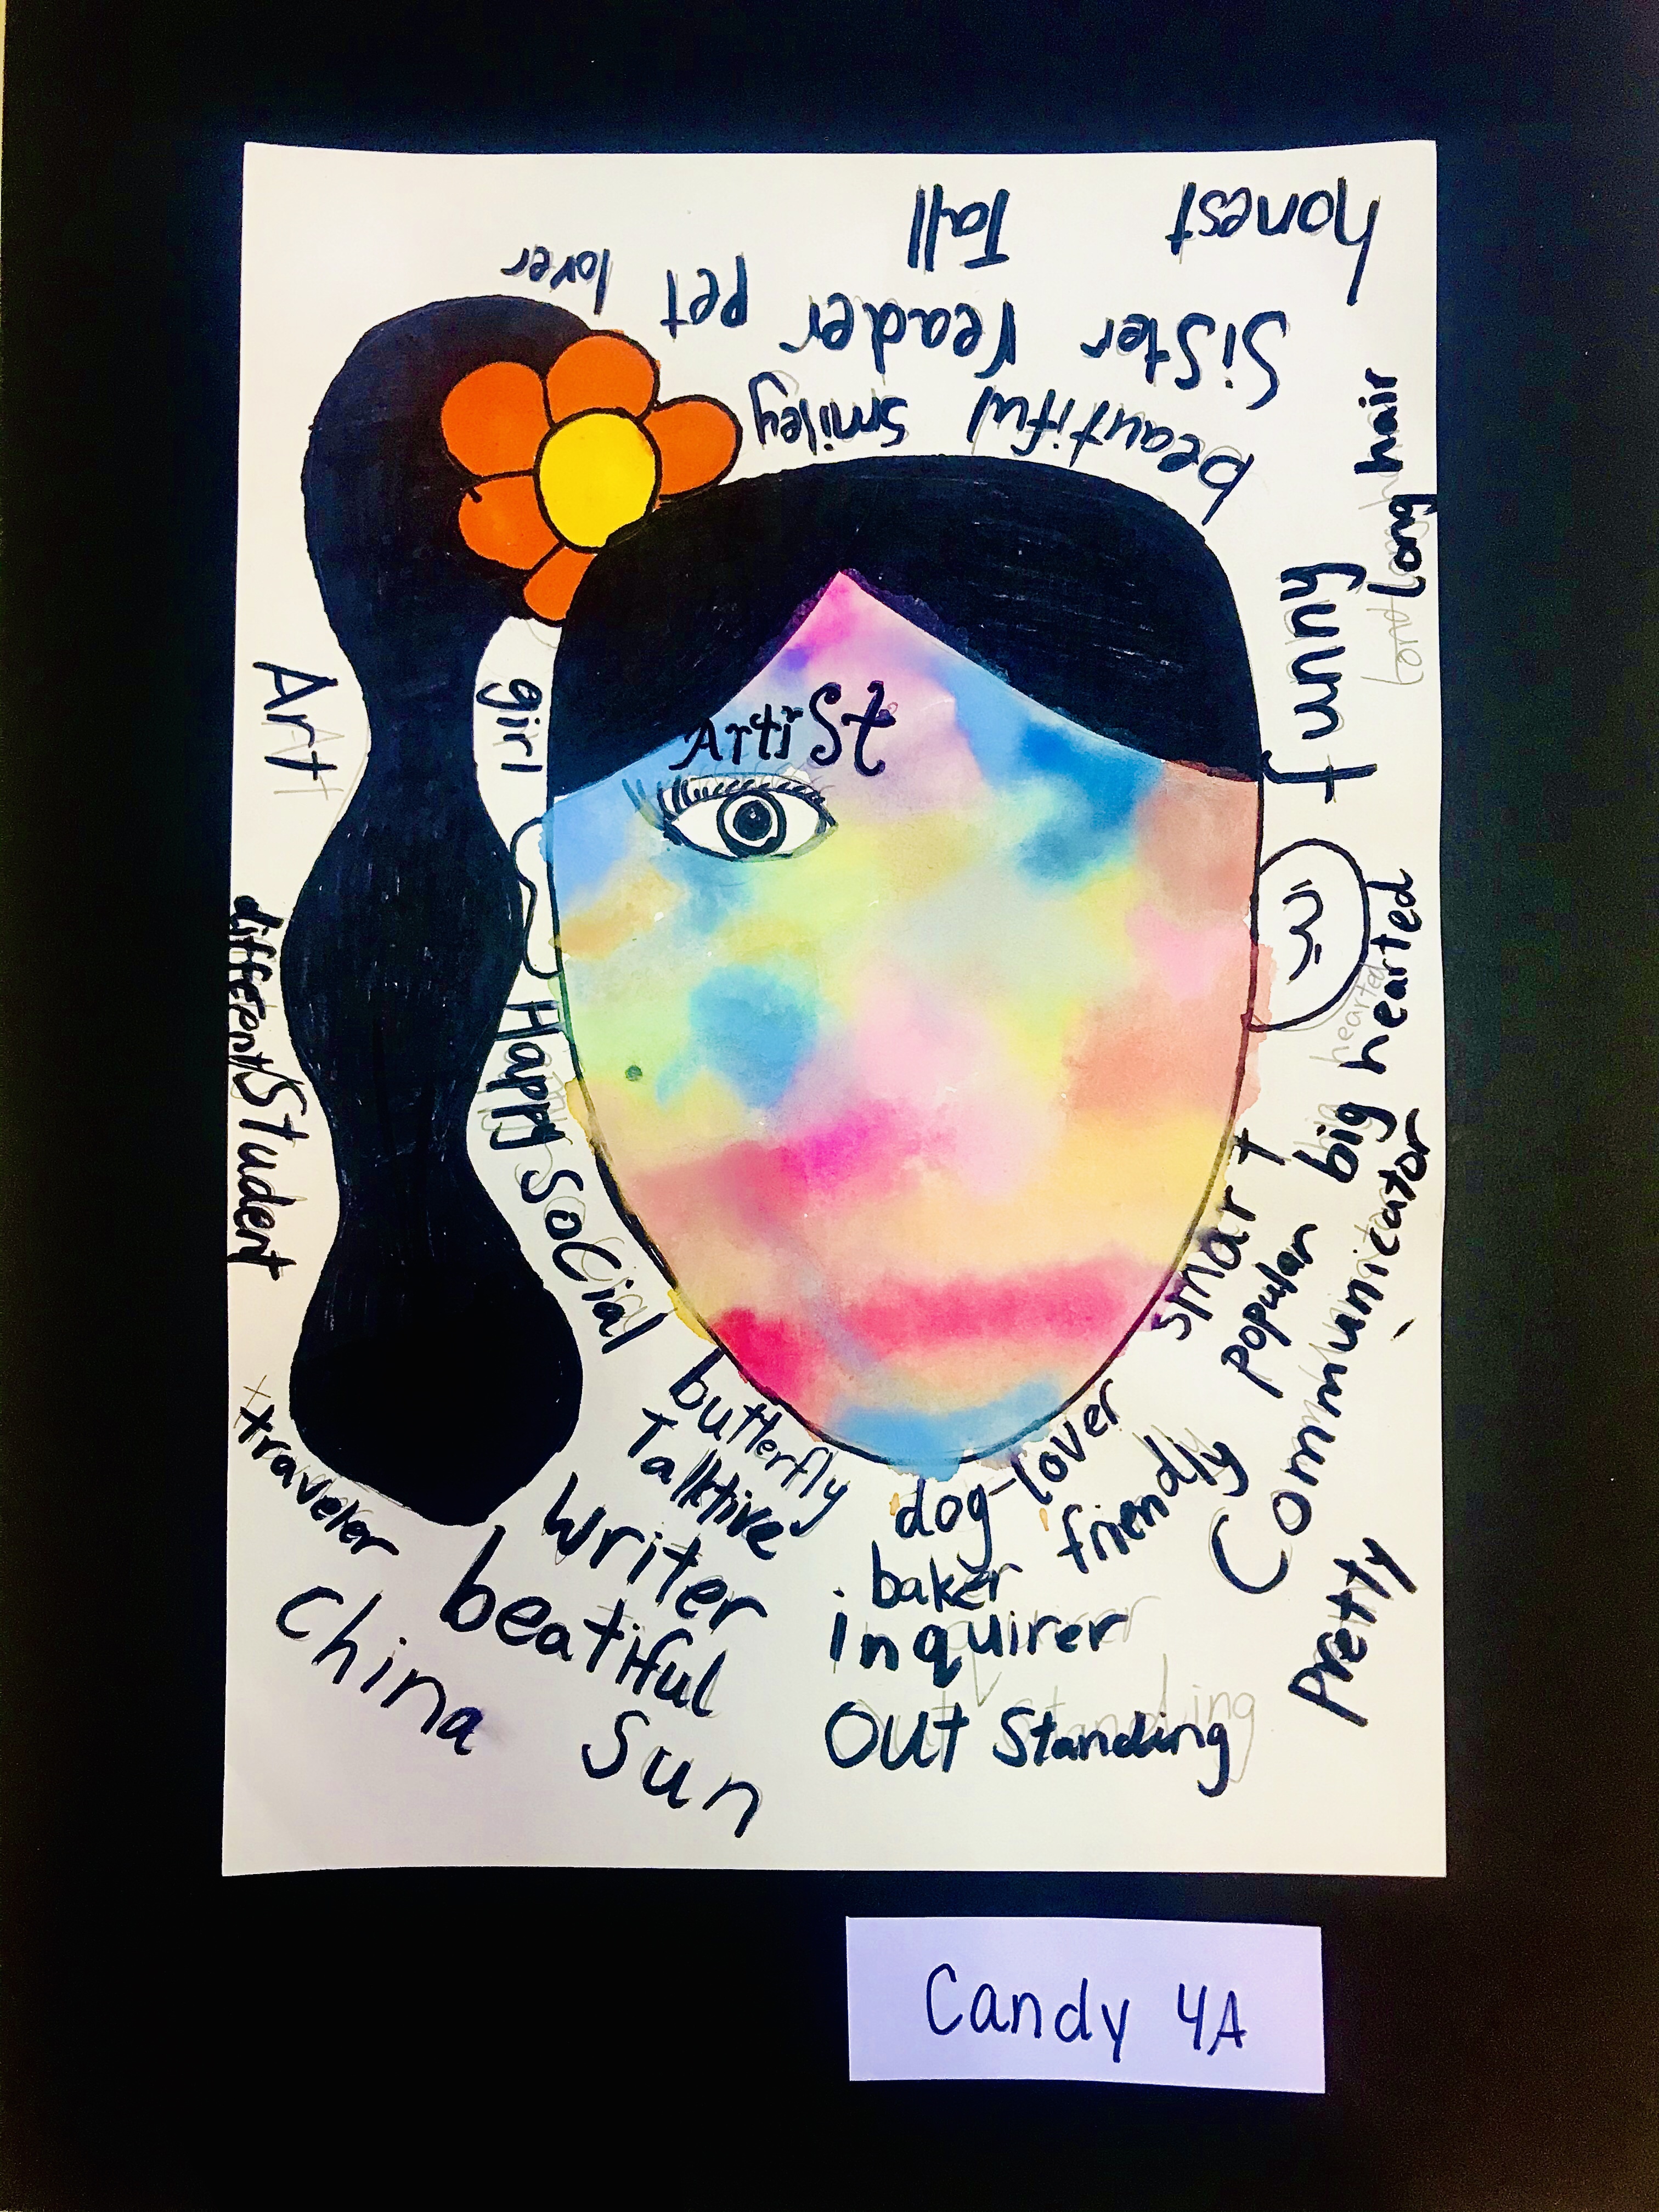 honest
Tall
Sister reader pet lover
beautiful smiley
Long hair
funny
Artist
girl
Art
different
Student
Happy
Social
butterfly
Talktive
Writer
beatiful
xtraveler
China Sun
big hearted
Communicator
smart
popular
dog-lover
friendly
baker
inquirer
Out Standing
pretty
Candy 4A